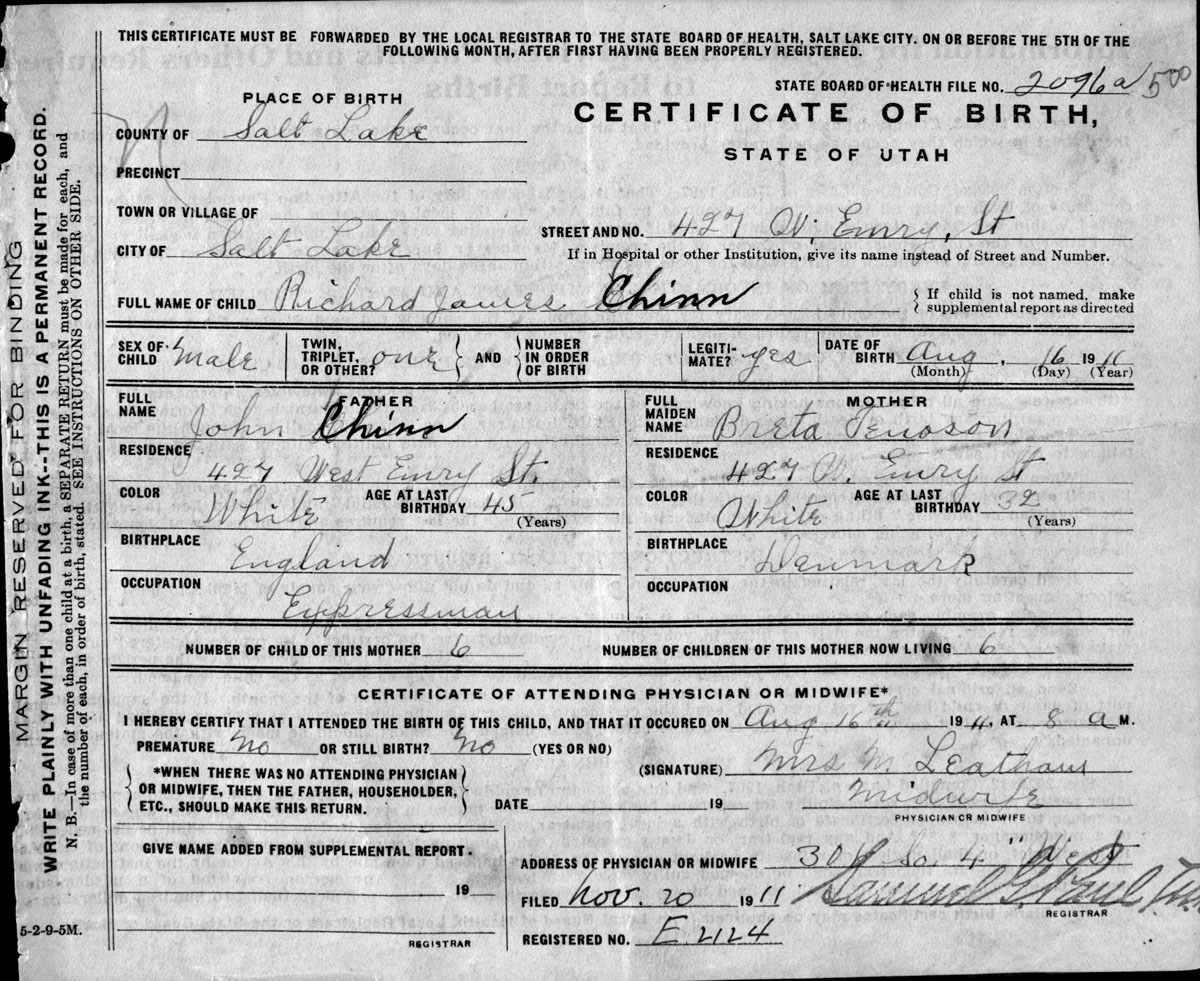 THIS CERTIFICATE MUST BE FORWARDED BY THE LOCAL REGISTRAR TO THE STATE BOARD OF HEALTH, SALT LAKE CITY. ON OR BEFORE THE 5TH OF THE
FOLLOWING MONTH, AFTER FIRST HAVING BEEN PROPERLY REGISTERED.
STATE BOARD OF HEALTH FILE NO. 2096a 500
PLACE OF BIRTH
CERTIFICATE OF BIRTH,
STATE OF UTAH
COUNTY OF Salt Lake
PRECINCT
TOWN OR VILLAGE OF
STREET AND NO. 427 W, Emry, St
CITY OF Salt Lake
If in Hospital or other Institution, give its name instead of Street and Number.
FULL NAME OF CHILD Richard James Chinn
If child is not named, make
supplemental report as directed
SEX OF CHILD Male
TWIN, TRIPLET, OR OTHER? one
AND
NUMBER IN ORDER OF BIRTH
LEGITI-MATE? yes
DATE OF BIRTH Aug, 16 1911
(Month) (Day) (Year)
FATHER
FULL NAME John Chinn
RESIDENCE 427 West Emry St.
COLOR White
AGE AT LAST BIRTHDAY 45
(Years)
BIRTHPLACE England
OCCUPATION Expressman
MOTHER
FULL MAIDEN NAME Breta
RESIDENCE 427 W. Emry St
COLOR White
AGE AT LAST BIRTHDAY 32
(Years)
BIRTHPLACE Denmark
OCCUPATION
NUMBER OF CHILD OF THIS MOTHER 6
NUMBER OF CHILDREN OF THIS MOTHER NOW LIVING 6
CERTIFICATE OF ATTENDING PHYSICIAN OR MIDWIFE*
I HEREBY CERTIFY THAT I ATTENDED THE BIRTH OF THIS CHILD, AND THAT IT OCCURED ON Aug 16th 1911. AT 8 a M.
PREMATURE No OR STILL BIRTH? No (YES OR NO)
(SIGNATURE) Mrs M. Leatham
*WHEN THERE WAS NO ATTENDING PHYSICIAN
OR MIDWIFE, THEN THE FATHER, HOUSEHOLDER,
ETC., SHOULD MAKE THIS RETURN.
DATE 19
Midwife
PHYSICIAN OR MIDWIFE
GIVE NAME ADDED FROM SUPPLEMENTAL REPORT.
19
REGISTRAR
ADDRESS OF PHYSICIAN OR MIDWIFE So. 4" West
FILED Nov. 20 1911 Samuel G. Paul
REGISTRAR
REGISTERED NO. E 2124
5-2-9-5M.
MARGIN RESERVED FOR BINDING
WRITE PLAINLY WITH UNFADING INK--THIS IS A PERMANENT RECORD.
N. B.—In case of more than one child at a birth, a SEPARATE RETURN must be made for each, and
the number of each, in order of birth, stated. SEE INSTRUCTIONS ON OTHER SIDE.